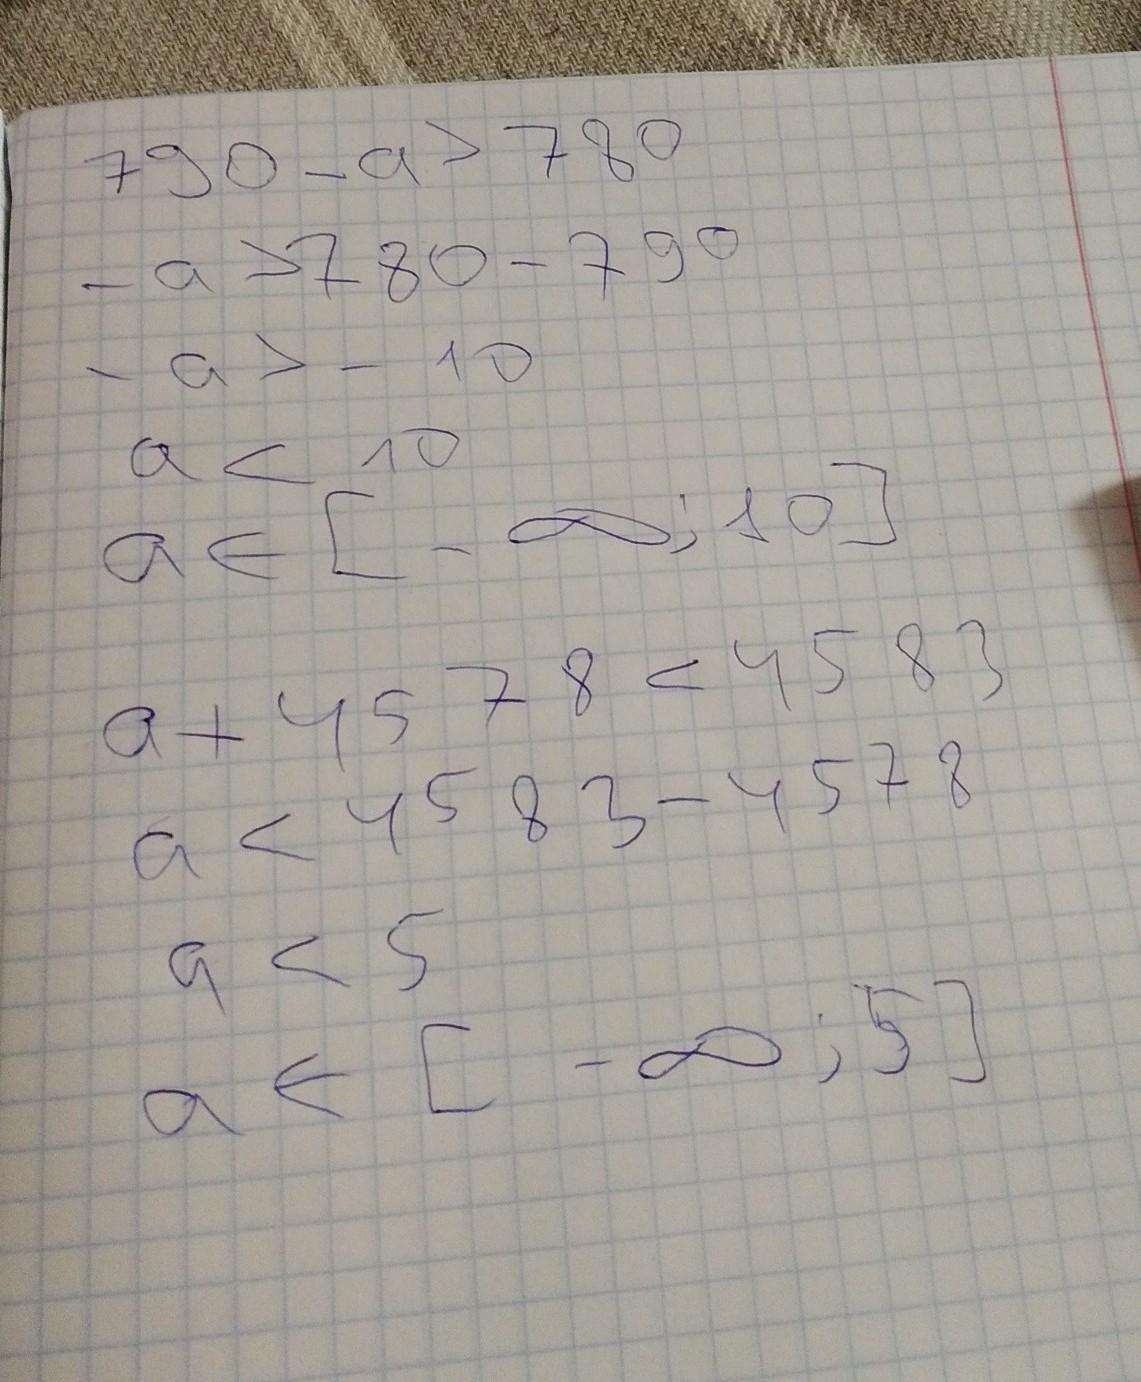 790 - a > 780
- a > 780 - 790
- a > - 10
a < 10
a ∈ [ - ∞ ; 10 ]
a + 4578 < 4583
a < 4583 - 4578
a < 5
a ∈ [ - ∞ ; 5 ]